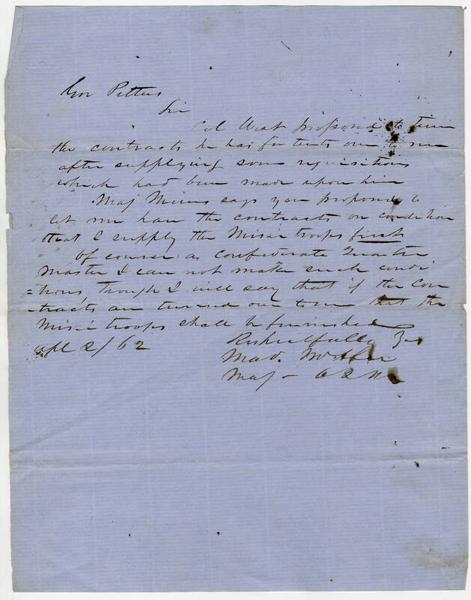 Gov Pettus
Sir
Col West proposed to turn
the contracts he has for tents over to me
after supplying some requisitions
which had been made upon him
Maj Mims says you propose to
let me have the contracts on condition
that I supply the Missi troops first
Of course as Confederate Quarter
Master I can not make such condi
=tions though I will say that if the Con
tracts are turned over to me that the
Missi troops shall be furnished
Apl 2/62
Respectfully Yrs
Mad. McAfee
Maj -